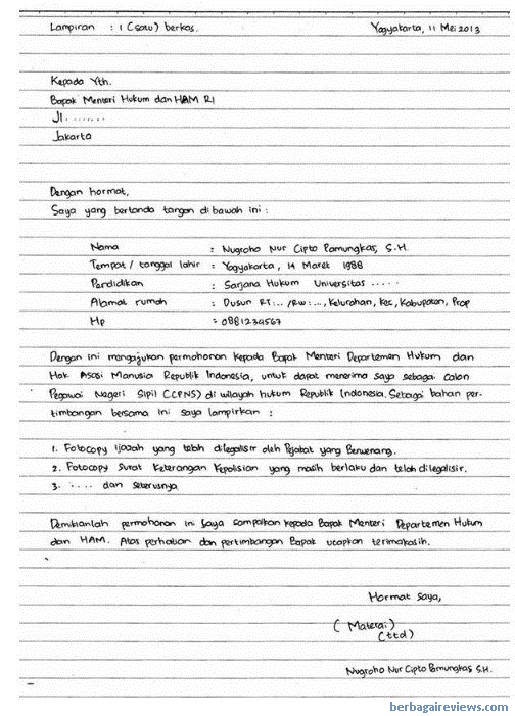 Lampiran : 1 (satu) berkas. Yogyakarta, 11 Mei 2013
Kepada Yth.
Bapak Menteri Hukum dan HAM RI
Jl........
Jakarta
Dengan hormat,
Saya yang bertanda tangan di bawah ini :
Nama : Nugroho Nur Cipto Pamungkas, S.H.
Tempat / tanggal lahir : Yogyakarta, 14 Maret 1988
Pendidikan : Sarjana Hukum Universitas .....
Alamat rumah : Dusun RT:.../RW:..., Kelurahan, Kec, Kabupaten, Prop
Hp : 0881234567
Dengan ini mengajukan permohonan kepada Bapak Menteri Departemen Hukum dan
Hak Asasi Manusia Republik Indonesia, untuk dapat menerima saya sebagai Calon
Pegawai Negeri Sipil (CPNS) di wilayah hukum Republik Indonesia. Sebagai bahan per-
timbangan bersama ini saya lampirkan :
1. Fotocopy Ijazah yang telah dilegalisir oleh Pejabat yang Berwenang.
2. Fotocopy Surat Keterangan Kepolisian yang masih berlaku dan telah dilegalisir.
3. ..... dan seterusnya
Demikianlah permohonan ini Saya sampaikan kepada Bapak Menteri Departemen Hukum
dan HAM. Atas perhatian dan pertimbangan Bapak ucapkan terimakasih.
Hormat Saya,
(Materai)
(ttd)
Nugroho Nur Cipto Pamungkas S.H.
berbagaireviews.com